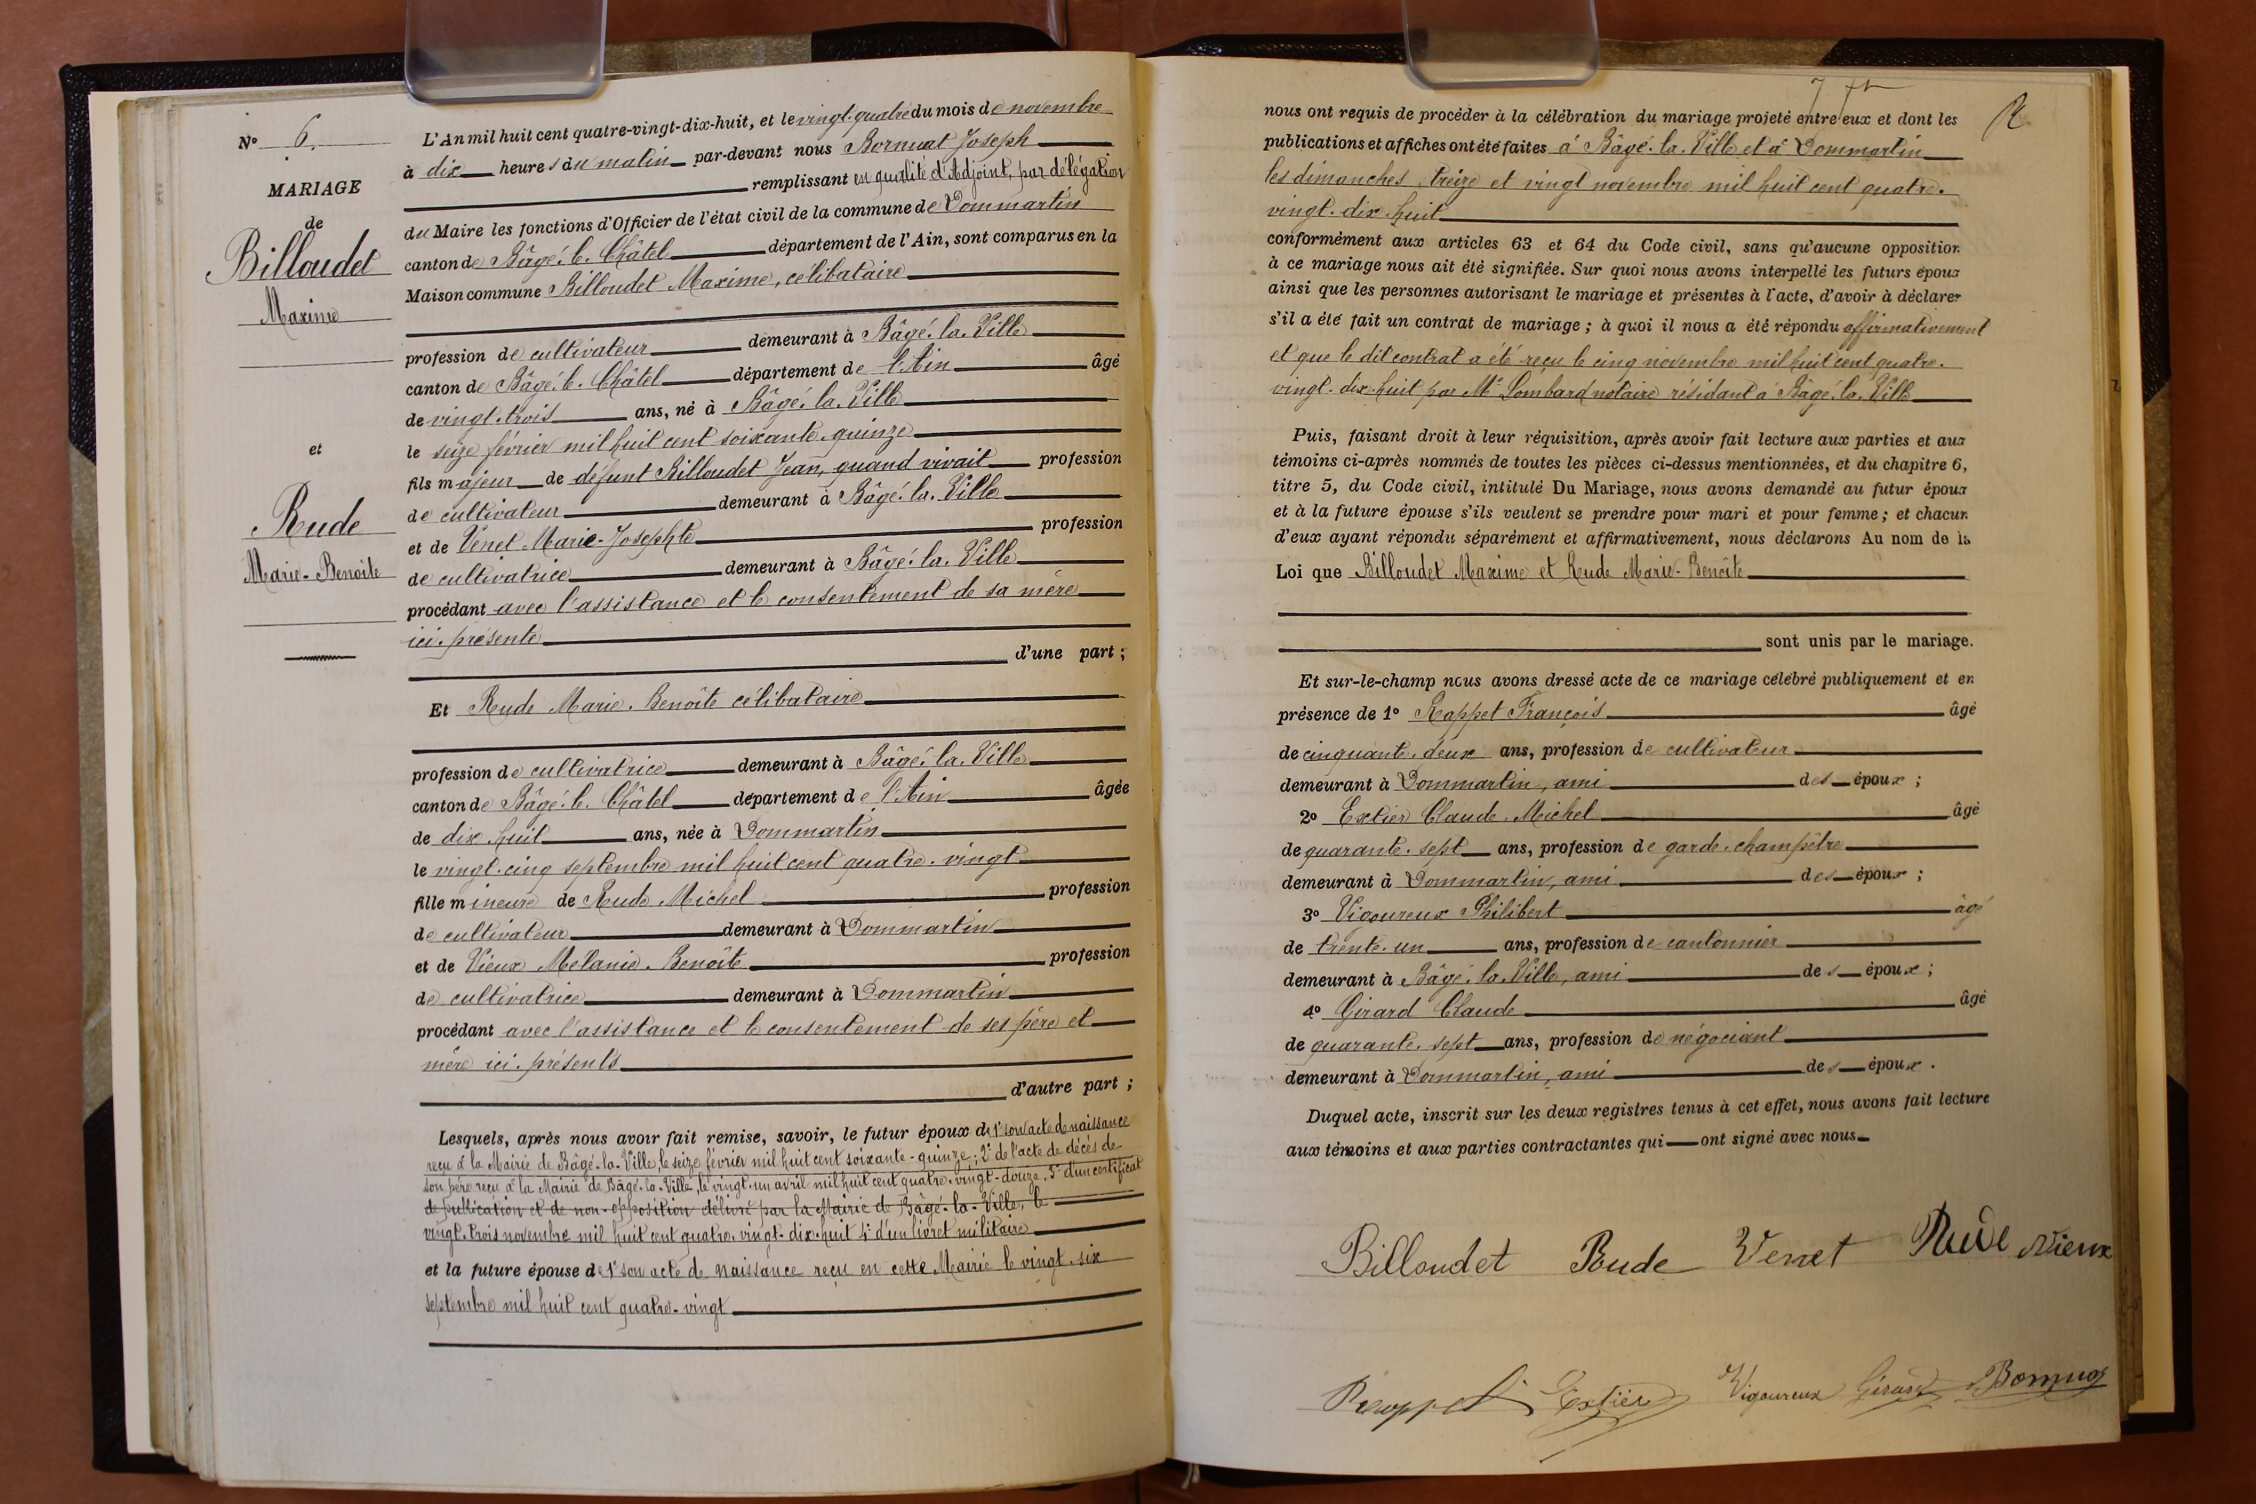 N° 6.
MARIAGE
de
Billoudet
Maxime
et
Rude
Marie-Benoîte
L'An mil huit cent quatre-vingt-dix-huit, et le vingt-quatre du mois de novembre
à dix heures du matin par-devant nous Bornuat Joseph
remplissant en qualité d'Adjoint, par délégation
du Maire les fonctions d'Officier de l'état civil de la commune de Dommartin
canton de Bâgé-le-Châtel département de l'Ain, sont comparus en la
Maison commune Billoudet Maxime, célibataire
profession de cultivateur demeurant à Bâgé-la-Ville
canton de Bâgé-le-Châtel département de l'Ain âgé
de vingt-trois ans, né à Bâgé-la-Ville
le seize février mil huit cent soixante-quinze
fils majeur de défunt Billoudet Jean, quand vivait profession
de cultivateur demeurant à Bâgé-la-Ville
et de Venet Marie-Josephte profession
de cultivatrice demeurant à Bâgé-la-Ville
procédant avec l'assistance et le consentement de sa mère
ici-présente
d'une part ;
Et Rude Marie-Benoîte célibataire
profession de cultivatrice demeurant à Bâgé-la-Ville
canton de Bâgé-le-Châtel département de l'Ain âgée
de dix-huit ans, née à Dommartin
le vingt-cinq septembre mil huit cent quatre-vingt
fille mineure de Rude Michel profession
de cultivateur demeurant à Dommartin
et de Vieux Mélanie-Benoîte profession
de cultivatrice demeurant à Dommartin
procédant avec l'assistance et le consentement de ses père et
mère ici-présents
d'autre part ;
Lesquels, après nous avoir fait remise, savoir, le futur époux de 1° son acte de naissance
reçu à la Mairie de Bâgé-la-Ville, le seize février mil huit cent soixante-quinze; 2° de l'acte de décès de
son père reçu à la Mairie de Bâgé-la-Ville, le vingt-un avril mil huit cent quatre-vingt-douze. 3° d'un certificat
de publication et de non-opposition délivré par la Mairie de Bâgé-la-Ville, le
vingt-trois novembre mil huit cent quatre-vingt-dix-huit 4° d'un livret militaire
et la future épouse de 1° son acte de naissance reçu en cette Mairie le vingt-six
septembre mil huit cent quatre-vingt
nous ont requis de procéder à la célébration du mariage projeté entre eux et dont les
publications et affiches ont été faites à Bâgé-la-Ville et à Dommartin
les dimanches treize et vingt novembre mil huit cent quatre-
vingt-dix-huit
conformément aux articles 63 et 64 du Code civil, sans qu'aucune opposition
à ce mariage nous ait été signifiée. Sur quoi nous avons interpellé les futurs époux
ainsi que les personnes autorisant le mariage et présentes à l'acte, d'avoir à déclarer
s'il a été fait un contrat de mariage ; à quoi il nous a été répondu affirmativement
et que le dit contrat a été reçu le cinq novembre mil huit cent quatre-
vingt-dix-huit par Me Lombard notaire résidant à Bâgé-la-Ville
Puis, faisant droit à leur réquisition, après avoir fait lecture aux parties et aux
témoins ci-après nommés de toutes les pièces ci-dessus mentionnées, et du chapitre 6,
titre 5, du Code civil, intitulé Du Mariage, nous avons demandé au futur époux
et à la future épouse s'ils veulent se prendre pour mari et pour femme ; et chacun
d'eux ayant répondu séparément et affirmativement, nous déclarons Au nom de la
Loi que Billoudet Maxime et Rude Marie-Benoîte
sont unis par le mariage.
Et sur-le-champ nous avons dressé acte de ce mariage célébré publiquement et en
présence de 1° Rappet François âgé
de cinquante-deux ans, profession de cultivateur
demeurant à Dommartin, ami des époux ;
2° Extier Claude-Michel âgé
de quarante-sept ans, profession de garde-champêtre
demeurant à Dommartin, ami des époux ;
3° Vigoureux Philibert âgé
de trente-un ans, profession de cantonnier
demeurant à Bâgé-la-Ville, ami des époux ;
4° Girard Claude âgé
de quarante-sept ans, profession de négociant
demeurant à Dommartin, ami des époux.
Duquel acte, inscrit sur les deux registres tenus à cet effet, nous avons fait lecture
aux témoins et aux parties contractantes qui ont signé avec nous
Billoudet Rude Venet Rude Vieux
Rappet Extier Vigoureux Girard